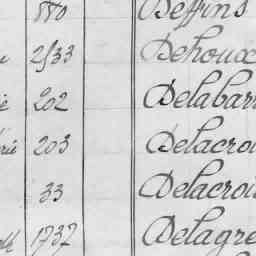 880 Deffins
2533 Dehoux
202 Delabar
203 Delacroi
33 Delacroi
1737 Delagre